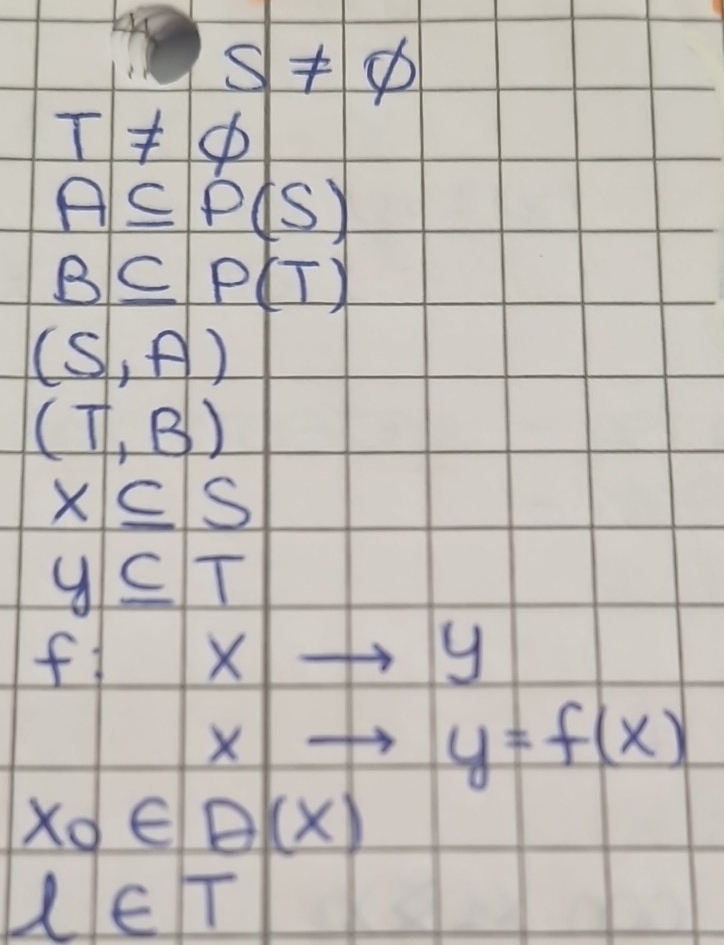 S ≠ ∅
T ≠ ∅
A ⊆ P(S)
B ⊆ P(T)
(S, A)
(T, B)
X ⊆ S
Y ⊆ T
f: X → Y
x → y = f(x)
x₀ ∈ D(X)
l ∈ T